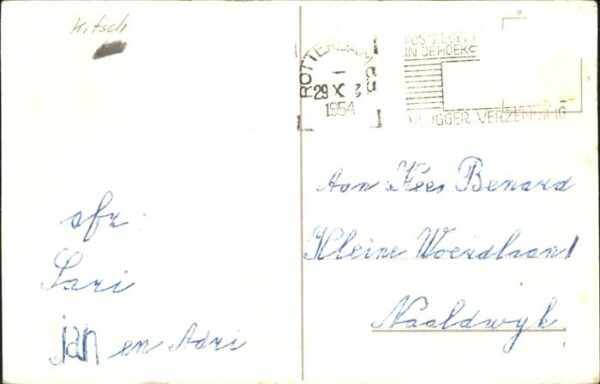 Kitsch
ROTTERDAM C.S.
29 X
1954
POSTZEGEL
IN DE HOEK
VLUGGER VERZENDING
afz:
Sari
jan en Adri
Aan Kees Benard
Kleine Woerdlaan 1
Naaldwyk.